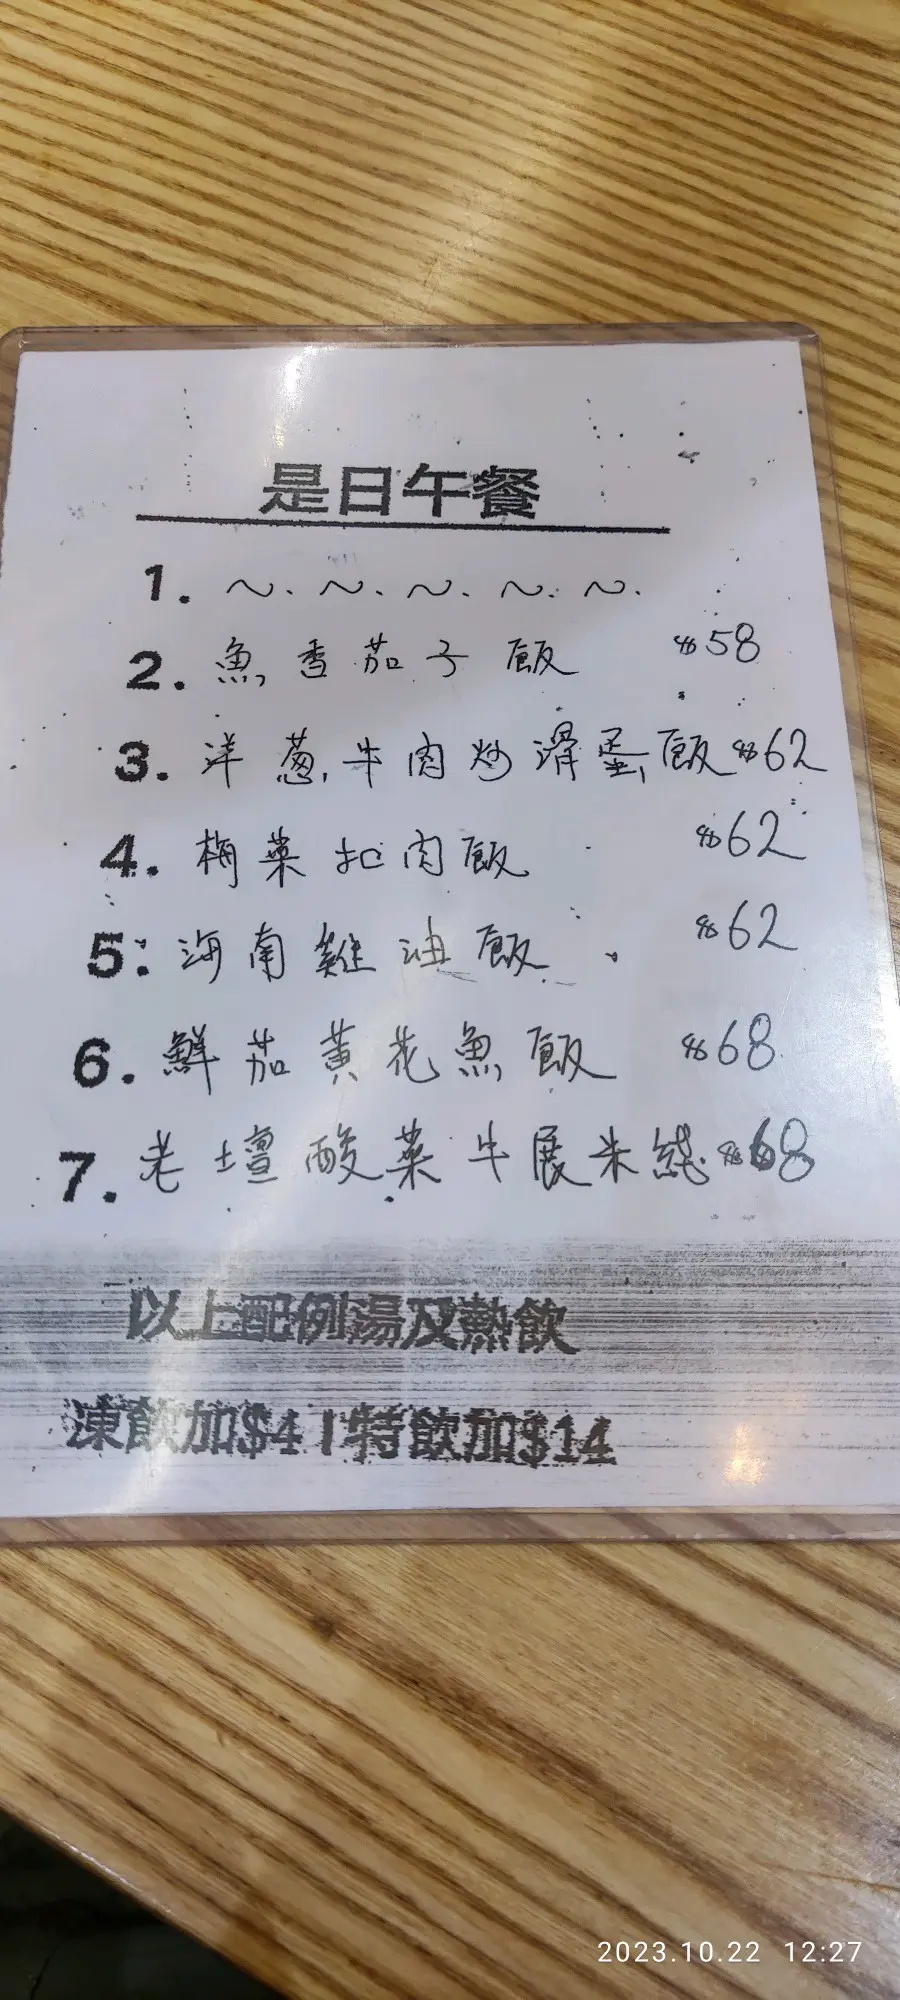 是日午餐
1. ~. ~. ~. ~. ~.
2. 魚香茄子飯 $58
3. 洋葱牛肉炒滑蛋飯 $62
4. 梅菜扣肉飯 $62
5. 海南雞油飯 $62
6. 鮮茄黃花魚飯 $68
7. 老壇酸菜牛展米綫 $68
以上配例湯及熱飲
凍飲加$4 | 特飲加$14
2023.10.22 12:27